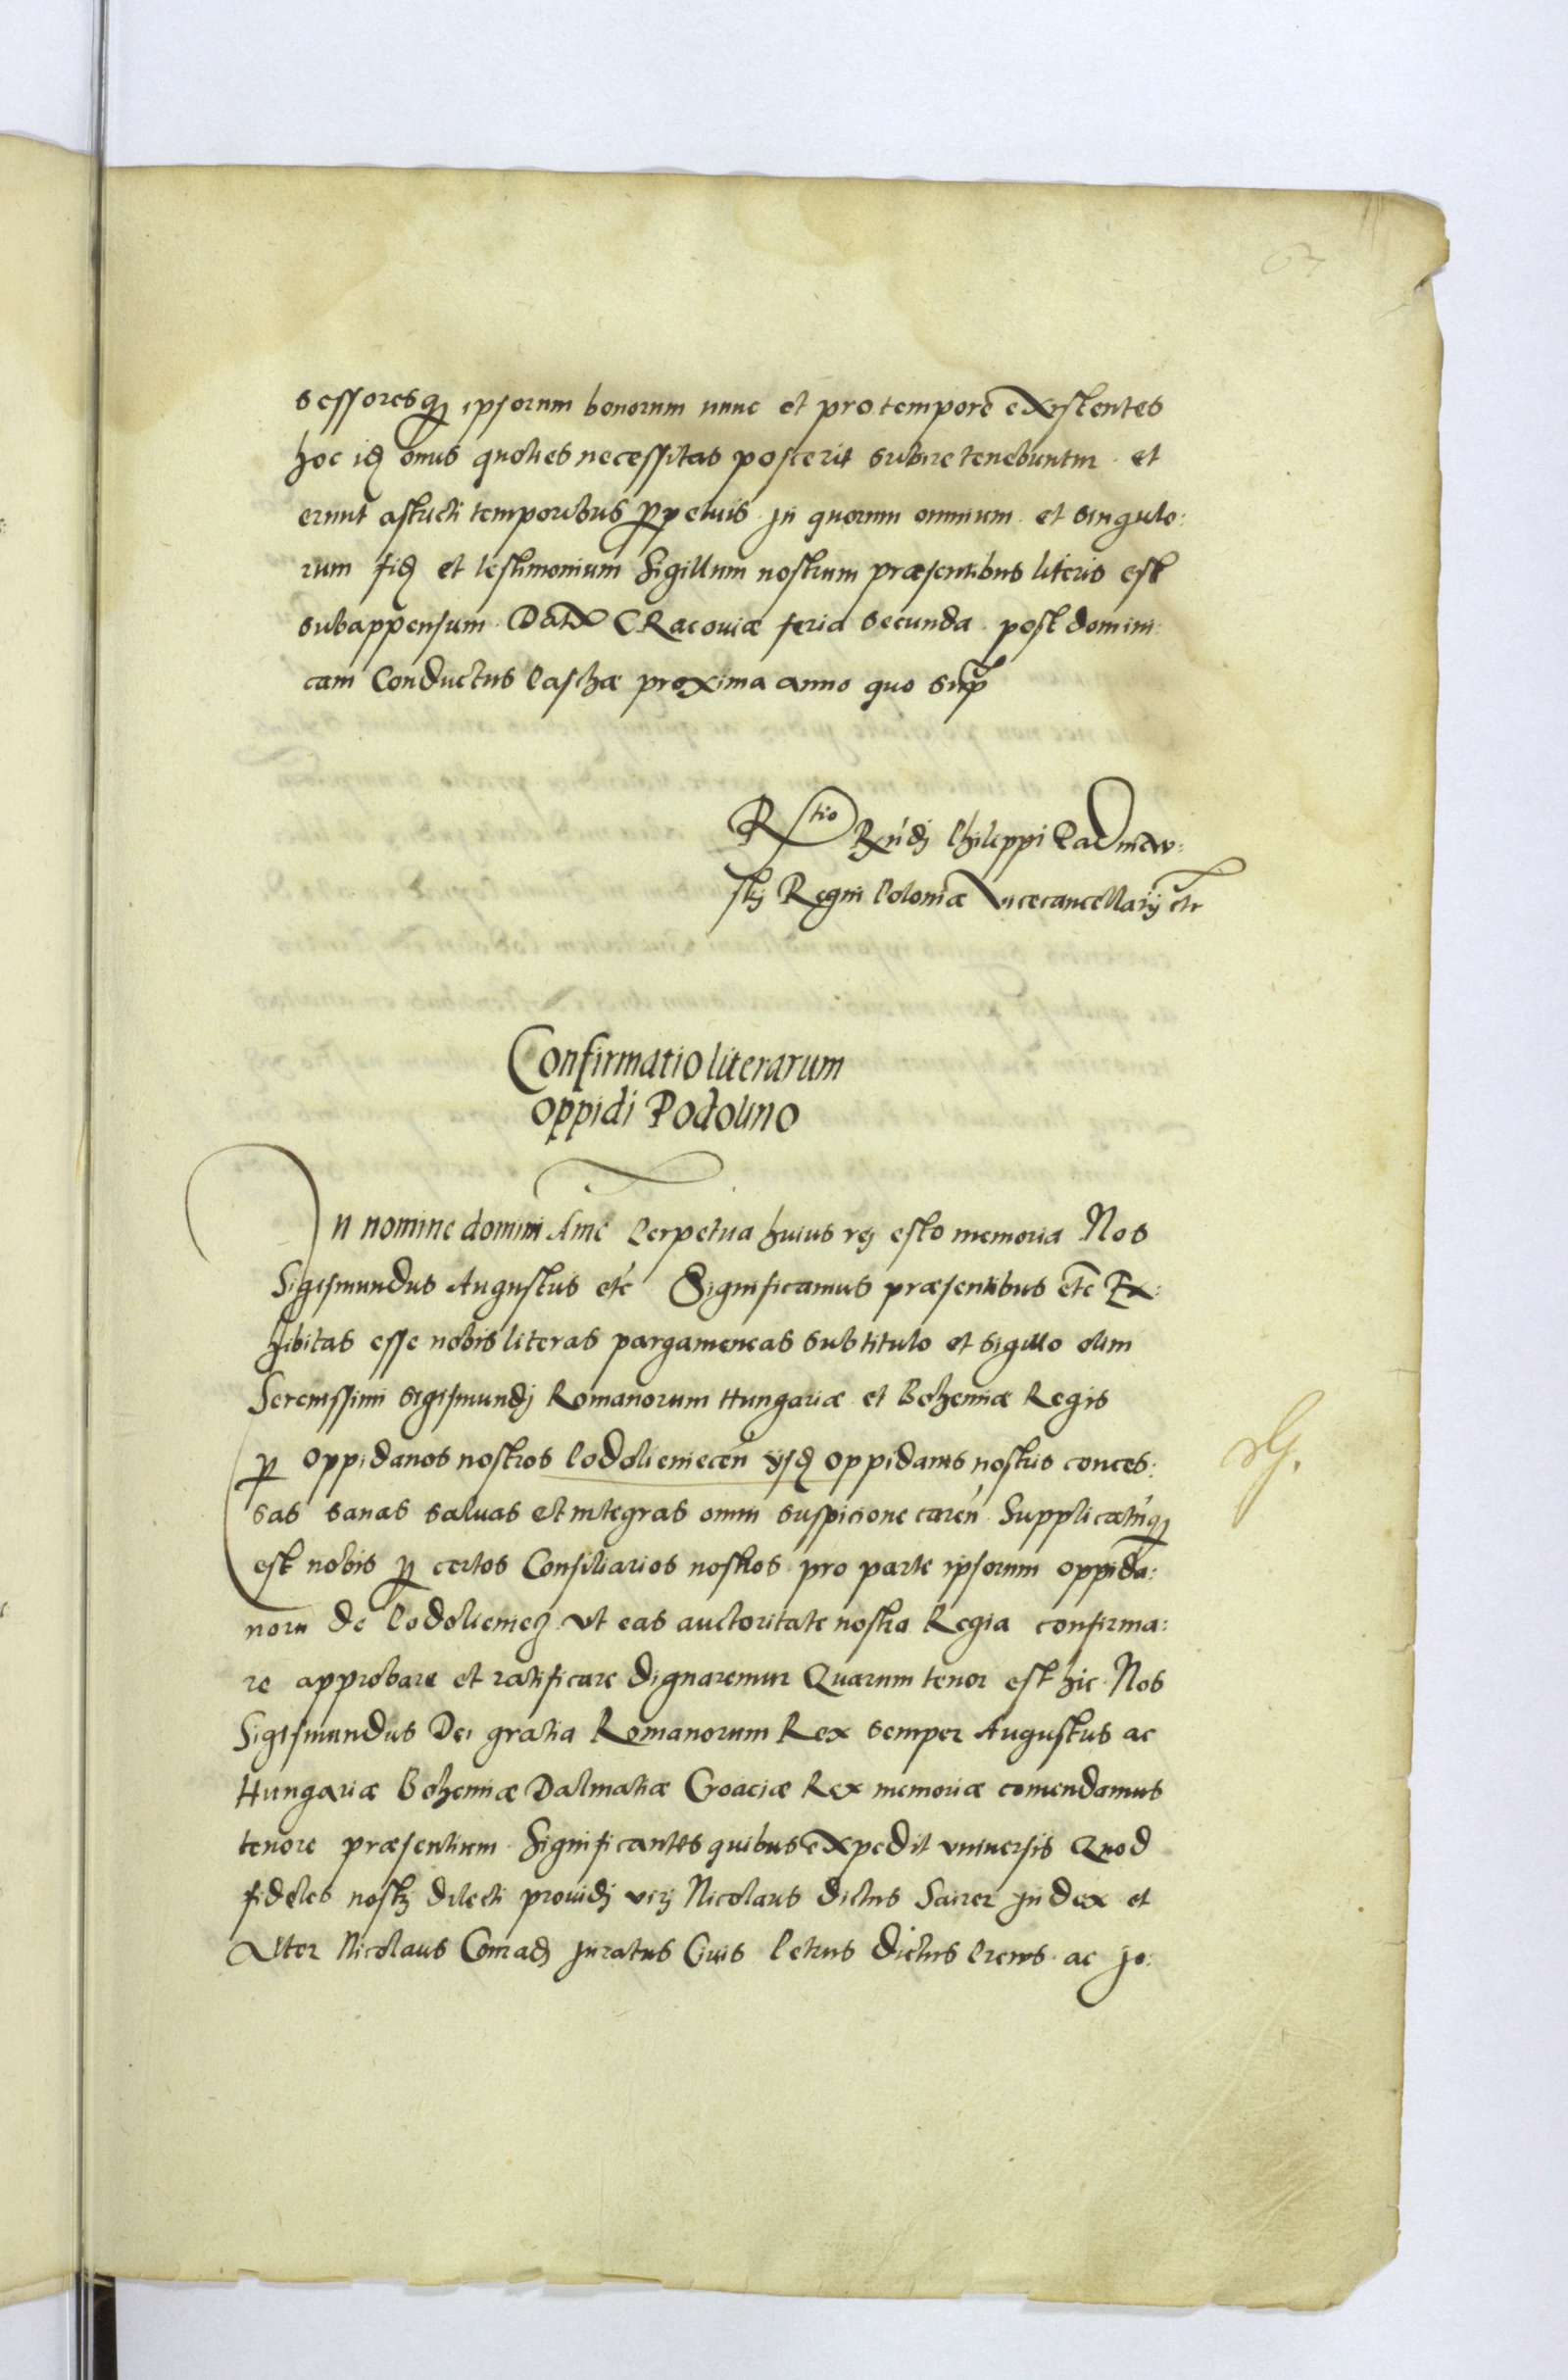 67
sessoresq ipsorum bonorum nunc et pro tempore existentes
hoc id onus quoties necessitas poscerit subire tenebuntur et
erunt astricti temporibus ppetuis. In quorum omnium et singulo:
rum fid et testimonium Sigillum nostrum præsentibus literis est
subappensum. Dat CRacoviæ feria secunda post domini:
cam Conductus Paschæ proxima anno quo sup
Rtio Rndj Philippi Padniew:
skj Regni Poloniæ Vicecancellarij etc
Confirmatio literarum
oppidi Podolino
In nomine domini Ame Perpetua huius rej esto memoria Nos
Sigismundus Augustus etc Significamus præsentibus etc Ex:
hibitas esse nobis literas pargameneas sub titulo et sigillo olim
Serenissimi Sigismundj Romanorum Hungariæ et Bohemiæ Regis
p oppidanos nostros Podoliemecen ijsd oppidanis nostris conces:
sas sanas salvas et integras omni suspicione caren Supplicatuq
est nobis p certos Consiliarios nostros pro parte ipsorum oppida:
noru de Podoliemecz ut eas auctoritate nostra Regia confirma:
re approbare et ratificare dignaremur Quarum tenor est hic. Nos
Sigismundus Dei gratia Romanorum Rex semper Augustus ac
Hungariæ Bohemiæ Dalmatiæ Croaciæ Rex memoriæ comendamus
tenore præsentium Significantes quibus expedit universis Quod
fideles nostrj dilecti providj virj Nicolaus dictus Sairer Judex et
Alter Nicolaus Conradj Juratus Civis Petrus dictus Prews ac Jo: